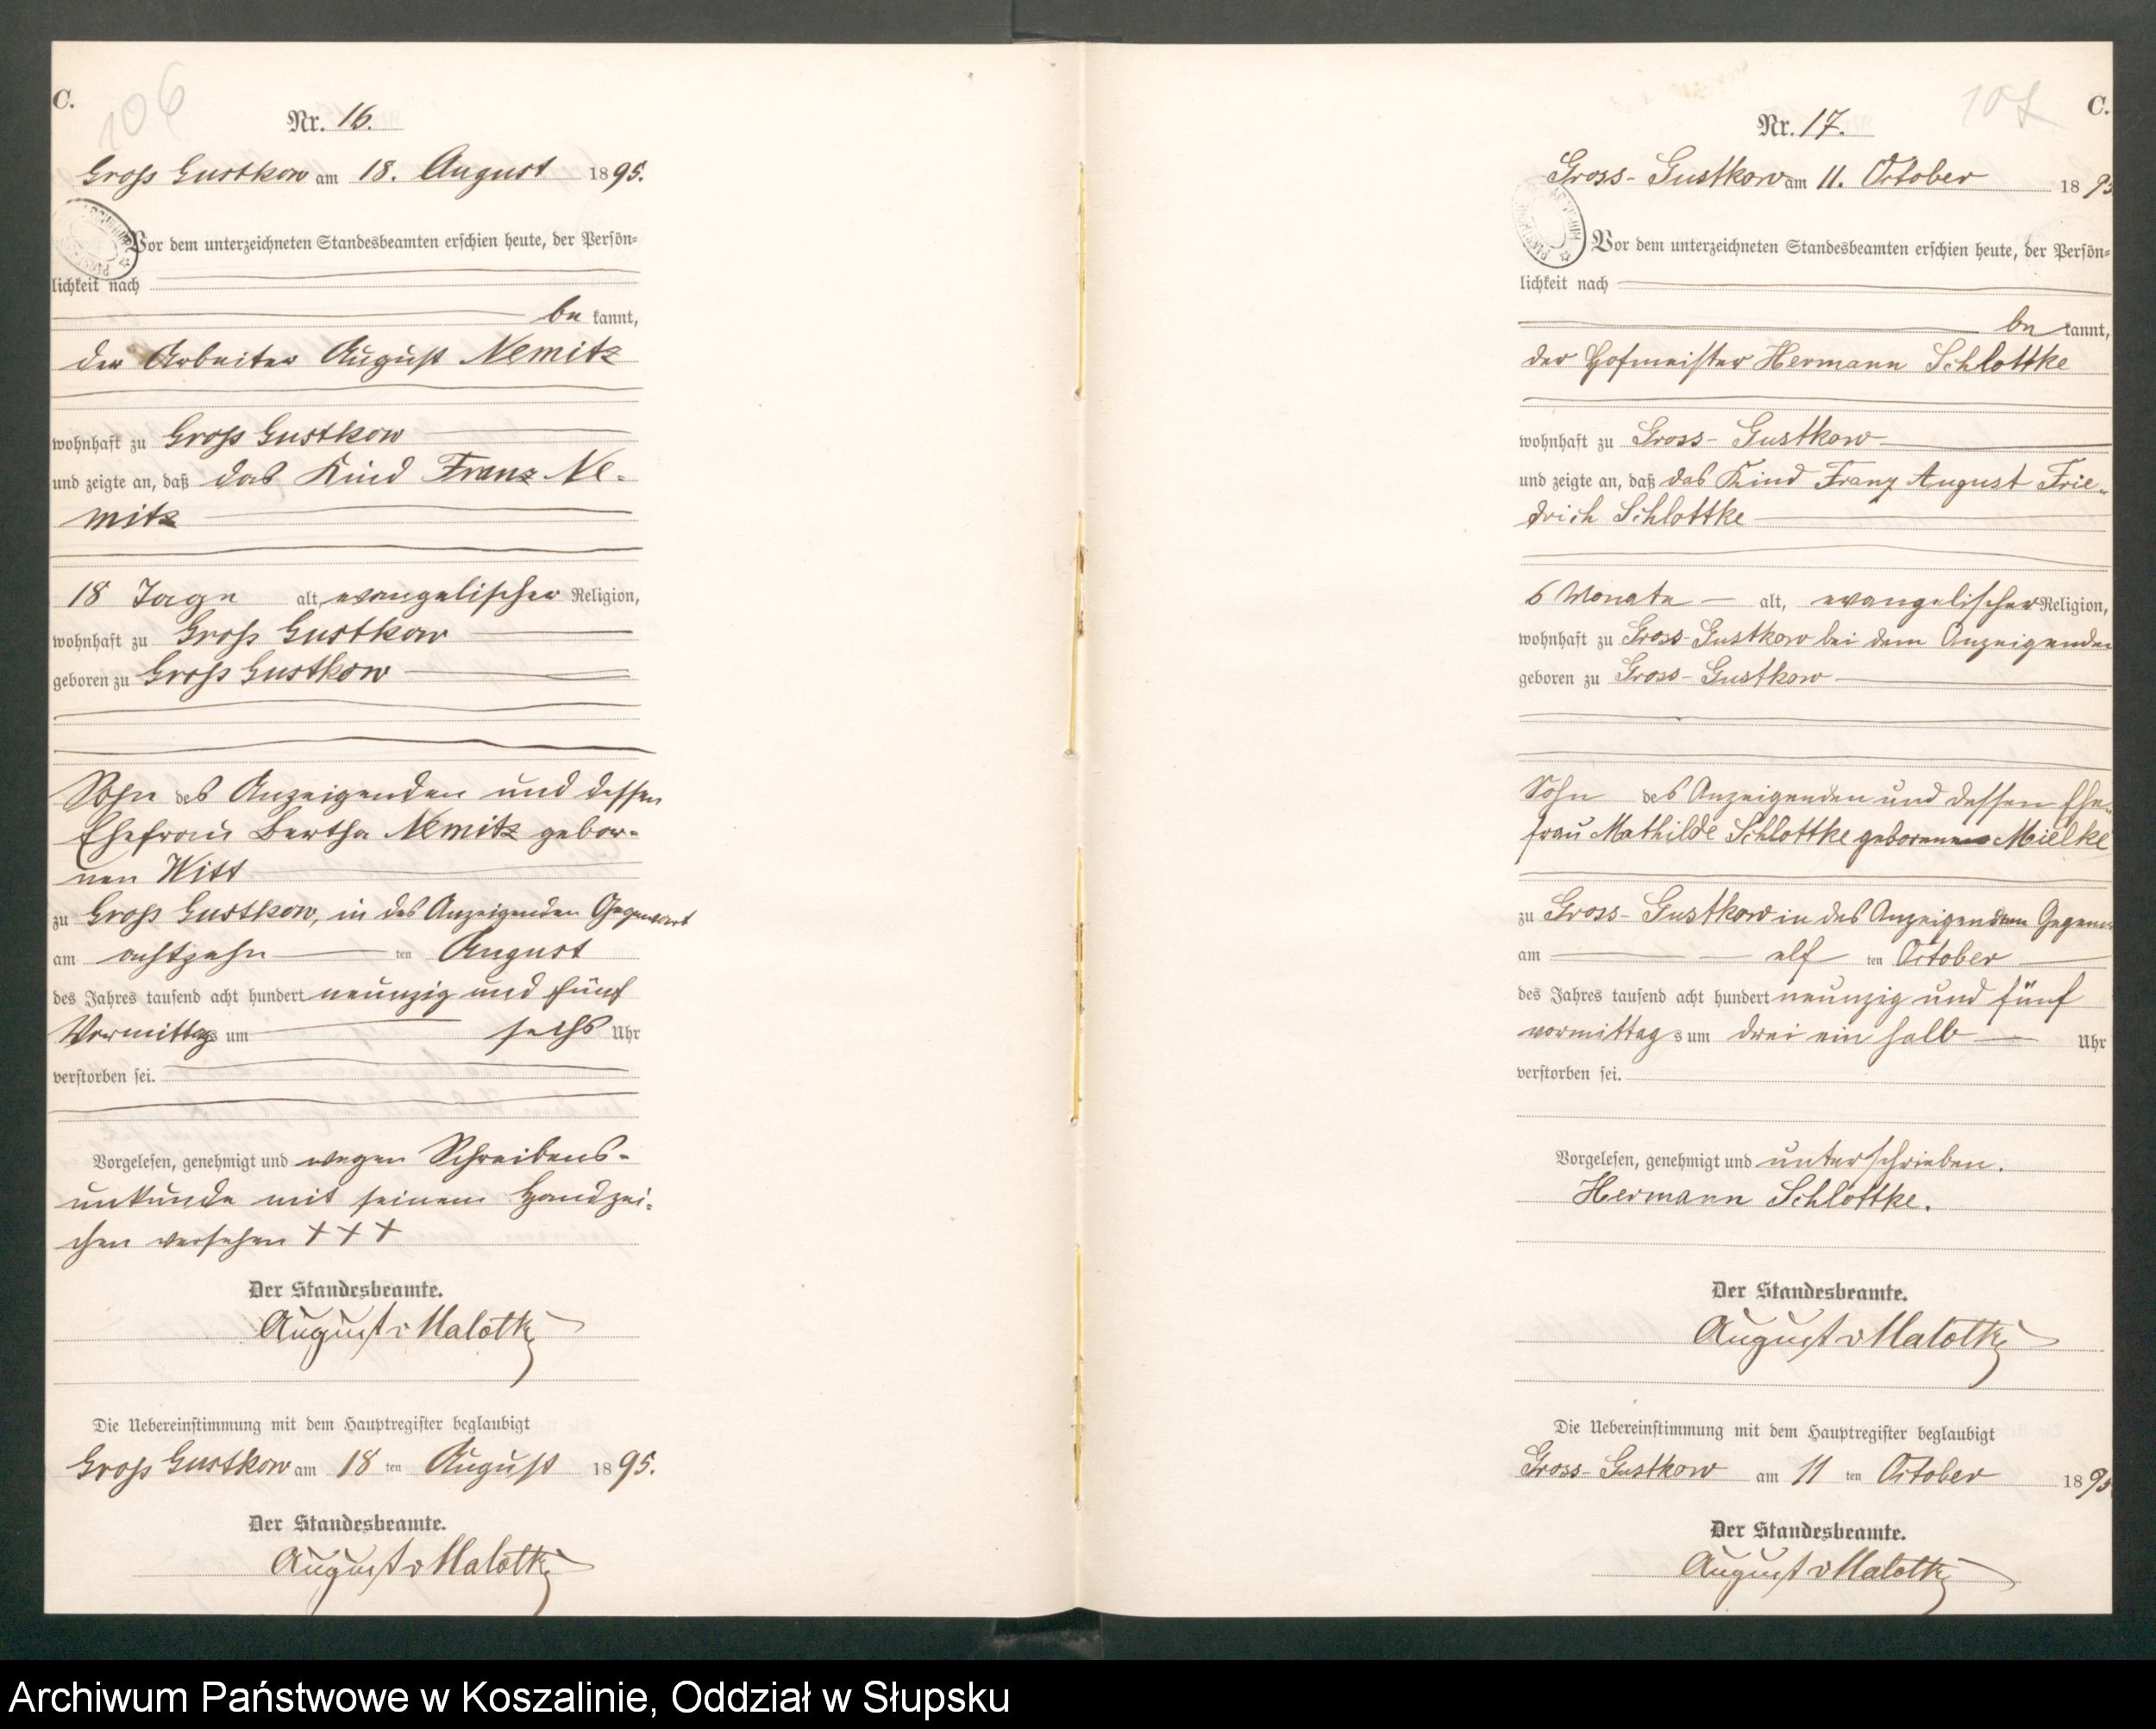 C.
106
Nr. 16.
Gross Gustkow am 18. August 1895.
Vor dem unterzeichneten Standesbeamten erschien heute, der Persön-
lichkeit nach
be kannt,
der Arbeiter August Nemitz
wohnhaft zu Gross Gustkow
und zeigte an, daß das Kind Franz Ne-
mitz
18 Tage alt, evangelischer Religion,
wohnhaft zu Gross Gustkow
geboren zu Gross Gustkow
Sohn des Anzeigenden und dessen
Ehefrau Bertha Nemitz gebor-
nen Witt
zu Gross Gustkow, in des Anzeigenden Gegenwart
am achtzehn ten August
des Jahres tausend acht hundert neunzig und fünf
Vormittags um sechs Uhr
verstorben sei.
Vorgelesen, genehmigt und wegen Schreibens-
unkunde mit seinem Handzei-
chen versehen +++
Der Standesbeamte.
August v Malottki
Die Uebereinstimmung mit dem Hauptregister beglaubigt
Gross Gustkow am 18 ten August 1895.
Der Standesbeamte.
August v Malottki
107 C.
Nr. 17.
Gross-Gustkow am 11. October 1895
Vor dem unterzeichneten Standesbeamten erschien heute, der Persön-
lichkeit nach
be kannt,
der Hofmeister Hermann Schlottke
wohnhaft zu Gross-Gustkow
und zeigte an, daß das Kind Franz August Frie-
drich Schlottke
6 Monate alt, evangelischer Religion,
wohnhaft zu Gross-Gustkow bei dem Anzeigenden
geboren zu Gross-Gustkow
Sohn des Anzeigenden und dessen Ehe-
frau Mathilde Schlottke geborenen Mielke
zu Gross-Gustkow in des Anzeigenden
am elf ten October
des Jahres tausend acht hundert neunzig und fünf
vormittags um drei ein halb Uhr
verstorben sei.
Vorgelesen, genehmigt und unterschrieben.
Hermann Schlottke.
Der Standesbeamte.
August v Malottki
Die Uebereinstimmung mit dem Hauptregister beglaubigt
Gross-Gustkow am 11 ten October 1895
Der Standesbeamte.
August v Malottki
Archiwum Państwowe w Koszalinie, Oddział w Słupsku